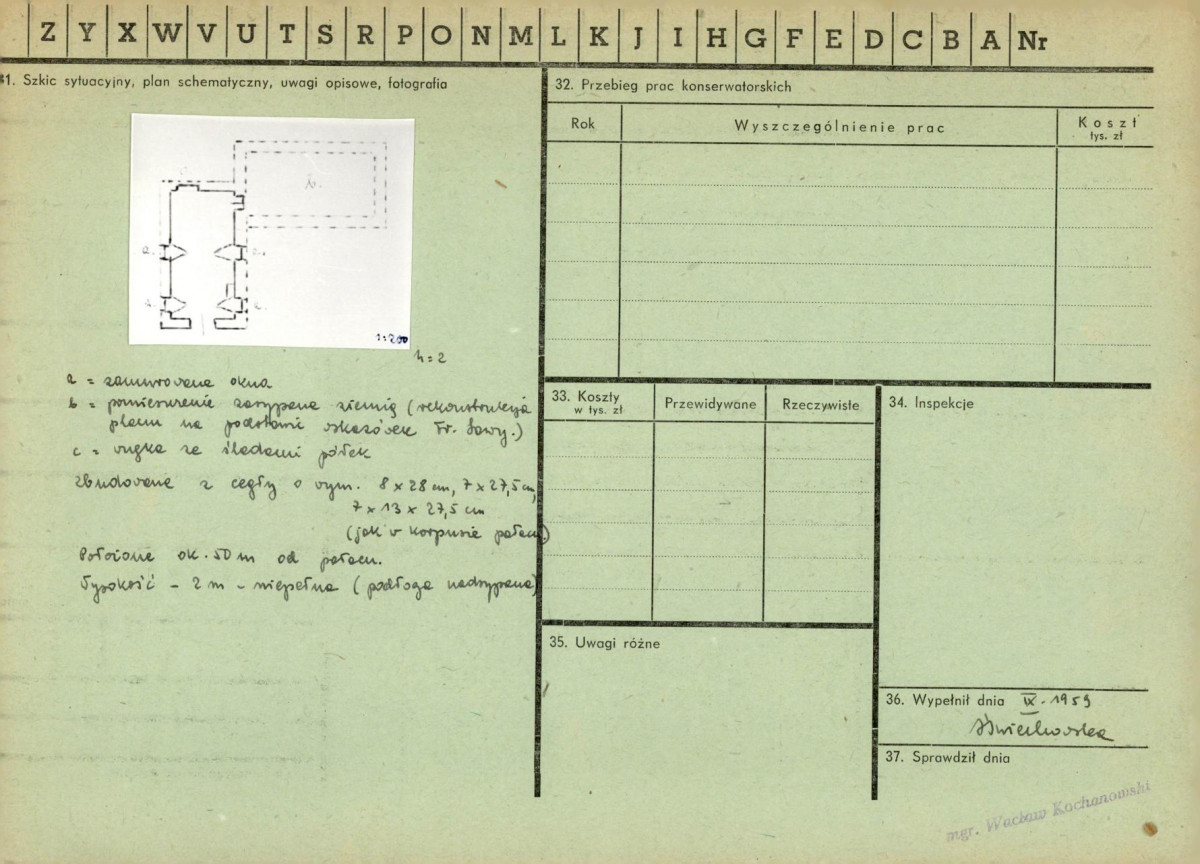 Z Y X W V U T S R P O N M L K J I H G F E D C B A Nr
31. Szkic sytuacyjny, plan schematyczny, uwagi opisowe, fotografia
c.
b.
a.
a.
a.
a.
1:200
h = 2
a = zamurowane okna
b = pomieszczenie zasypane ziemią (rekonstrukcja
planu na podstawie wskazówek Fr. Sowy.)
c = wnęka ze śladami półek
Zbudowane z cegły o wym. 8 x 28 cm, 7 x 27,5 cm,
7 x 13 x 27,5 cm
(jak w korpusie pałacu)
Położone ok. 50 m od pałacu.
Wysokość – 2 m – niepełna (podłoga nadsypana)
32. Przebieg prac konserwatorskich
Rok
Wyszczególnienie prac
Koszt
tys. zł
33. Koszty
w tys. zł
Przewidywane
Rzeczywiste
34. Inspekcje
35. Uwagi różne
36. Wypełnił dnia IX. 1959
37. Sprawdził dnia
mgr. Wacław Kochanowski